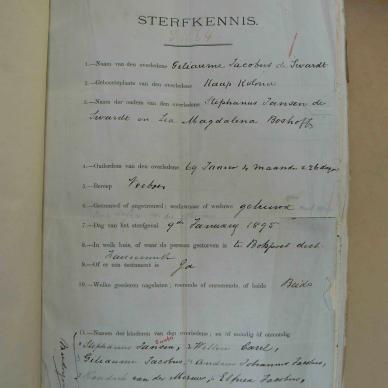 STERFKENNIS.
1.—Naam van den overledene Geliaume Jacobus de Swardt
2.—Geboorteplaats van den overledene Kaap Kolonie
3.—Naam der ouders van den overledene Stephanus Jansen de
Swardt en Lea Magdalena Boshoff
4.—Ouderdom van den overledene 69 Jaaren 4 maanden 26 dagen
5.—Beroep Veeboer
6.—Getrouwd of ongetrouwd; weduwnaar of weduwe getrouwd
7.—Dag van het sterfgeval 9de January 1895
8.—In welk huis, of waar de persoon gestorven is te Bokpoort dist.
9.—Of er een testament is Ja
10.—Welke goederen nagelaten; roerende of onroerende, of beide Beide
11.—Namen der kinderen van den overledene, en of mondig of onmondig
Stephanus Jansen, Willem Carel,
Geliaume Jacobus, Andries Johannes Jacobus,
Hendrik van der Merwe, Jacobus,